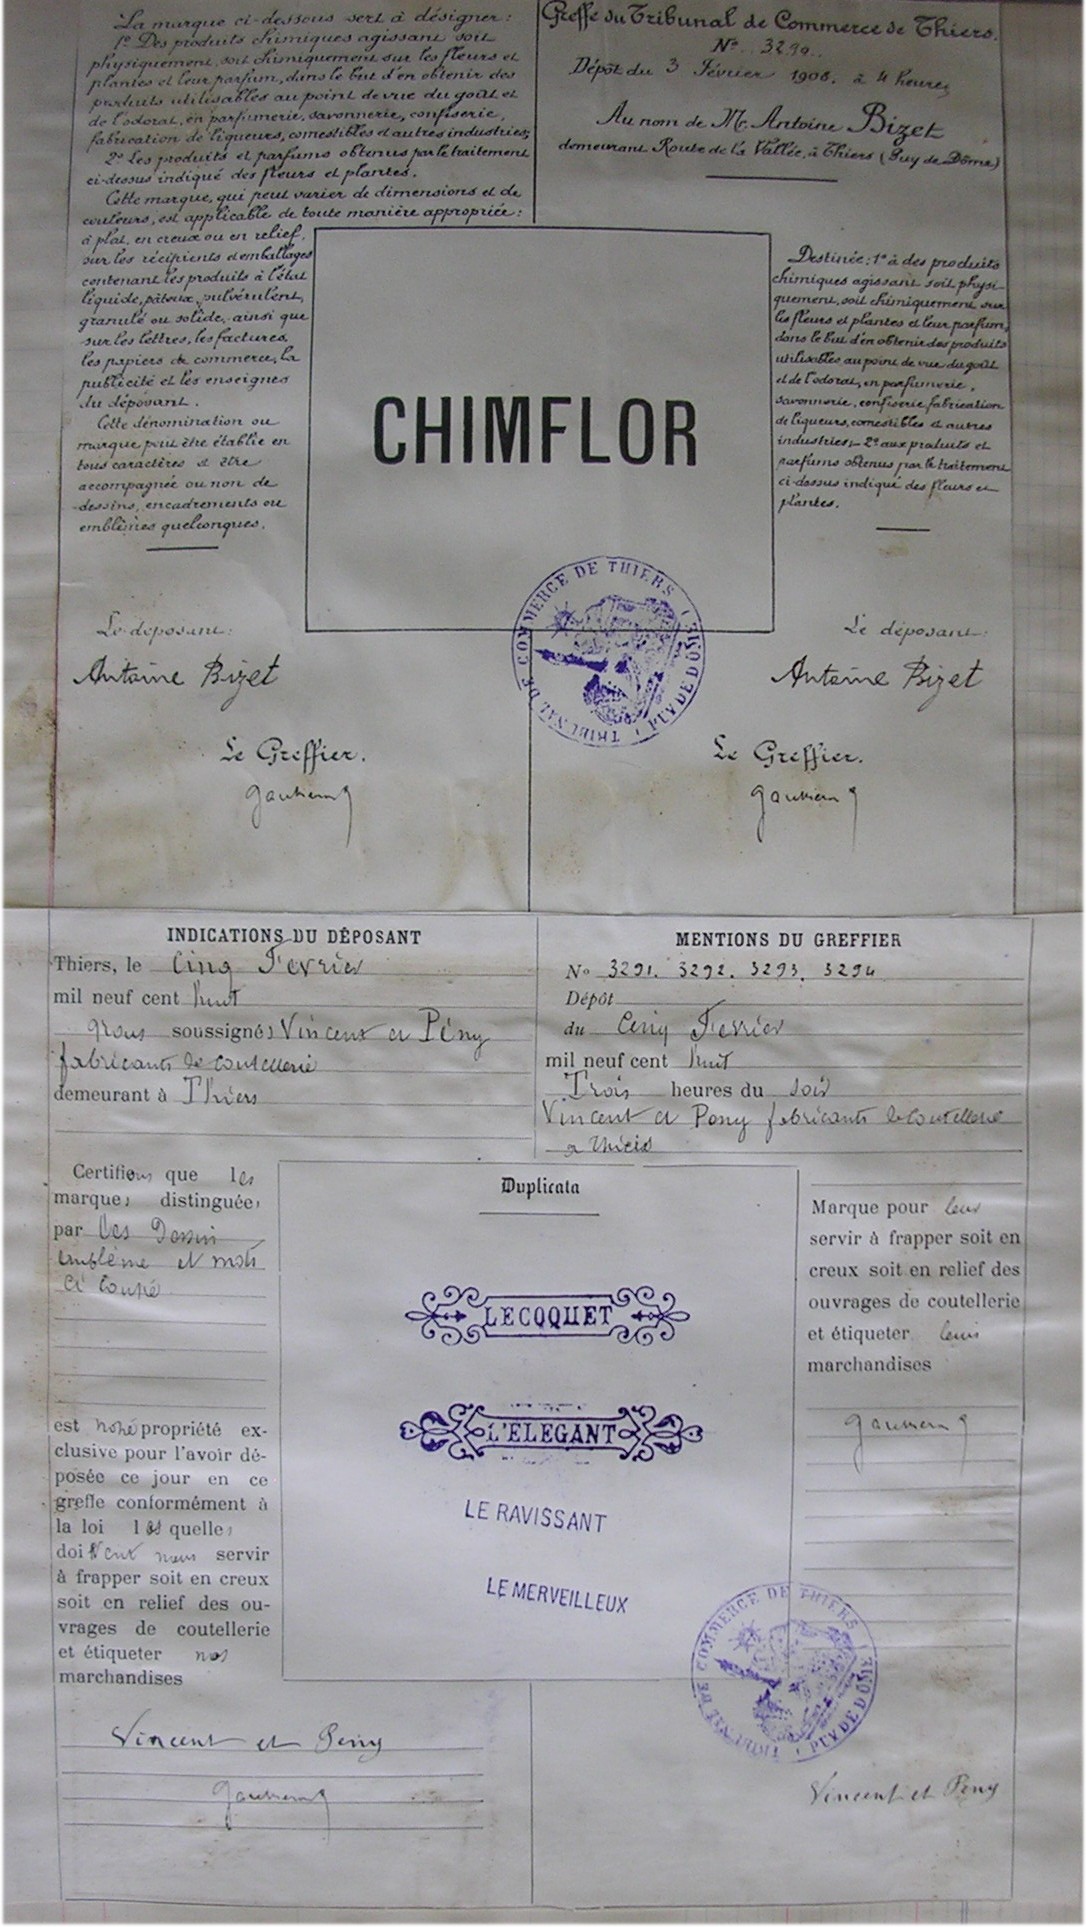 La marque ci-dessous sert à désigner:
1º Des produits chimiques agissant soit
physiquement, soit chimiquement sur les fleurs et
plantes et leur parfum, dans le but d'en obtenir des
produits utilisables au point de vue du goût et
de l'odorat, en parfumerie, savonnerie, confiserie,
fabrication de liqueurs, comestibles et autres industries;
2º Les produits et parfums obtenus par le traitement
ci-dessus indiqué des fleurs et plantes.
Cette marque, qui peut varier de dimensions et de
couleurs, est applicable de toute manière appropriée:
à plat, en creux ou en relief,
sur les récipients et emballages
contenant les produits à l'état
liquide, pâteux, pulvérulent,
granulé ou solide, ainsi que
sur les lettres, les factures,
les papiers de commerce, la
publicité et les enseignes
du déposant.
Cette dénomination ou
marque peut être établie en
tous caractères et être
accompagnée ou non de
dessins, encadrements ou
emblèmes quelconques.
Le déposant:
Antoine Bizet
Le Greffier.
Greffe du Tribunal de Commerce de Thiers.
Nº 3290.
Dépôt du 3 Février 1908. à 4 heures
Au nom de Mr. Antoine Bizet
demeurant Route de la Vallée, à Thiers (Puy de Dôme)
CHIMFLOR
Destinée: 1º à des produits
chimiques agissant soit physi-
quement, soit chimiquement sur
les fleurs et plantes et leur parfum,
dans le but d'en obtenir des produits
utilisables au point de vue du goût
et de l'odorat, en parfumerie,
savonnerie, confiserie fabrication
de liqueurs, comestibles et autres
industries;- 2º aux produits et
parfums obtenus par le traitement
ci-dessus indiqué des fleurs et
plantes.
TRIBUNAL DE COMMERCE DE THIERS (PUY DE DÔME)
Le déposant:
Antoine Bizet
Le Greffier.
INDICATIONS DU DÉPOSANT
Thiers, le Cinq Fevrier
mil neuf cent huit
Nous soussignés Vincent et Pény
fabricants de coutellerie
demeurant à Thiers
Certifions que les
marques distinguées
par les Dessin
emblème et mots
ci
est notre propriété ex-
clusive pour l'avoir dé-
posée ce jour en ce
greffe conformément à
la loi lesquelles
doivent nous servir
à frapper soit en creux
soit en relief des ou-
vrages de coutellerie
et étiqueter nos
marchandises
Vincent et Pény
MENTIONS DU GREFFIER
Nº 3291. 3292. 3293. 3294
Dépôt
du Cinq Fevrier
mil neuf cent huit
Trois heures du soir
Vincent et Pény fabricants de coutellerie
a Thiers
Duplicata
LECOQUET
L'ELEGANT
LE RAVISSANT
LE MERVEILLEUX
Marque pour leur
servir à frapper soit en
creux soit en relief des
ouvrages de coutellerie
et étiqueter leurs
marchandises
TRIBUNAL DE COMMERCE DE THIERS (PUY DE DÔME)
Vincent et Pény